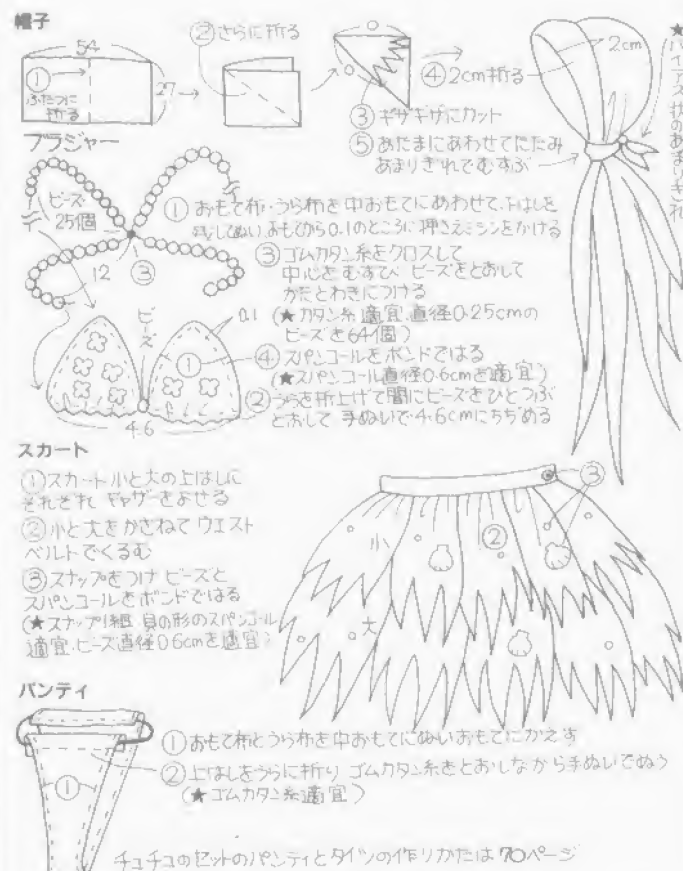 帽子
54
27
① ふたつに
折る
②さらに折る
③ギザギザにカット
④2cm折る
⑤あたまにあわせてたたみ
あまりぎれでむすぶ
2cm
★バイアス状のあまりぎれ
ブラジャー
ビーズ
25個
12
③
①おもて布・うら布を中おもてにあわせて、下はしを
残してぬい、おもてから0.1のところに押さえミシンをかける
③ゴムカタン糸をクロスして
中心をむすび ビーズをとおして
かたとわきにつける
(★カタン糸適宜、直径0.25cmの
ビーズを64個)
④スパンコールをボンドではる
(★スパンコール直径0.6cmを適宜)
②うらを折上げて間にビーズをひとつぶ
とおして 手ぬいで4.6cmにちぢめる
ビーズ
0.1
①
4.6
スカート
①スカート小と大の上はしに
それぞれ ギャザーをよせる
②小と大をかさねて ウエスト
ベルトでくるむ
③スナップをつけ ビーズと
スパンコールをボンドではる
(★スナップ1組、貝の形のスパンコール
適宜、ビーズ直径0.6cmを適宜)
小
大
②
③
パンティ
①
①おもて布とうら布を中おもてにぬいおもてにかえす
②上はしをうらに折り ゴムカタン糸をとおしながら手ぬいでぬう
(★ゴムカタン糸適宜)
チュチュのセットのパンティとタイツの作りかたは70ページ